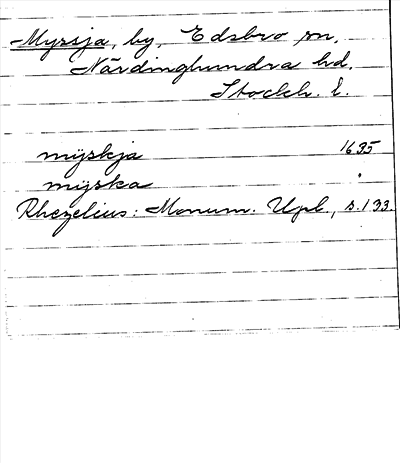 Myrsja, by, Edsbro sn,
Närdinghundra hd.
Stockh. l.
mijskja 1635
mijska "
Rhezelius: Monum. Upl., s. 133.